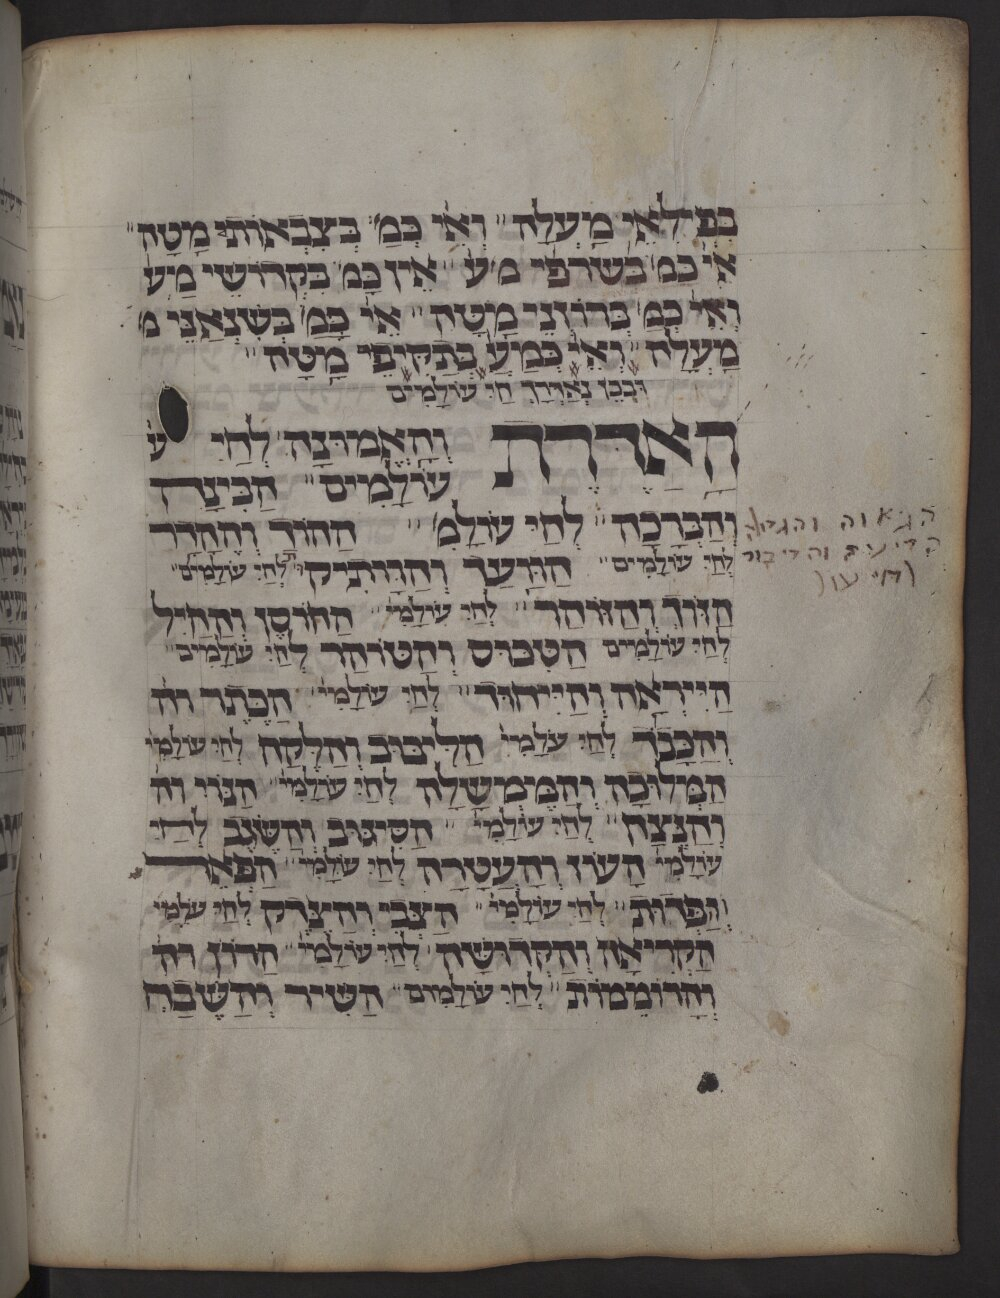 בִּפְלָאֵי מַעְלָה" וְאֵי כְּמ' בְּצִבְאוֹתֵי מַטָּה"
אֵי כמ' בִּשְרְפֵי מ'ע' אֵין כָּמ' בִּקְדוֹשֵי מַ'ע
וְאֵי כְּמ' בְּרוֹזְנֵי מַטָּה" אֵי כָּמ' בְּשִנְאַנֵּי מ'
מַעְלָה" וְאֵי כְּמ'ע' בְּתַקִיפֵי מַטָּה"
וּבְכֵן נַאְדִּרָךְ חַי עוֹלָמִים
הָאַדֶרֶת וְהָאֱמוּנָה לְחַי ע
עוֹלָמִים" הַבִּינָה
וְהַבְּרָכָה" לְחַי עוֹלָמִ' " הַהוֹד וְהֶהָדָר
לְחַי עוֹלָמִים" הַוַּעַד וְהַוָּתִיקוּת לְחַי עוֹלָמִים"
הַזִּוּךְ וְהַזּוֹהַר" לְחַי עוֹלָמִי" הַחוֹסֶן וְהַחַיִל
לְחַי עוֹלָמִים הַטִּכּוּס וְהַטּוֹהַר לְחַי עוֹלָמִים"
הַיִּירְאָה וְהַיִּיחוּד" לְחַי עוֹלָמִי" הַכֶּתֶר וה
וְהַכָּבֹד לְחַי עֹלָמִי הַלִּיבּוּב וְהַלֶּקַח לְחַי עוֹלָמִי
הַמְּלוּכָה וְהַמֶּימְשָלָה לְחַי עוֹלָמִי" הַנּוֹי וה
וְהַנֶּצַח" לְחַי עוֹלָמִי" הַסִּיגוּב וְהַשֶּׂגֶב לְחַי
עוֹלָמִי הָעוֹז וְהָעֲטָרָה לְחַי עוֹלָמִי" הַפְּאֵר
וְהַפְּדוּת" לְחַי עוֹלָמִי" הַצְּבִי וְהַצֶּדֶק לְחַי עוֹלָמִי
הַקְּרִיאָה וְהַקְּדוּשָּׁה לְחַי עוֹלָמִי" הַרוֹן וה
וְהָרוֹמֵמוֹת" לְחַי עוֹלָמִים" הַשִּׁיר וְהַשֶּׁבַח
הגאוה והגדולה
הדיעה והדיבור
לחי עו